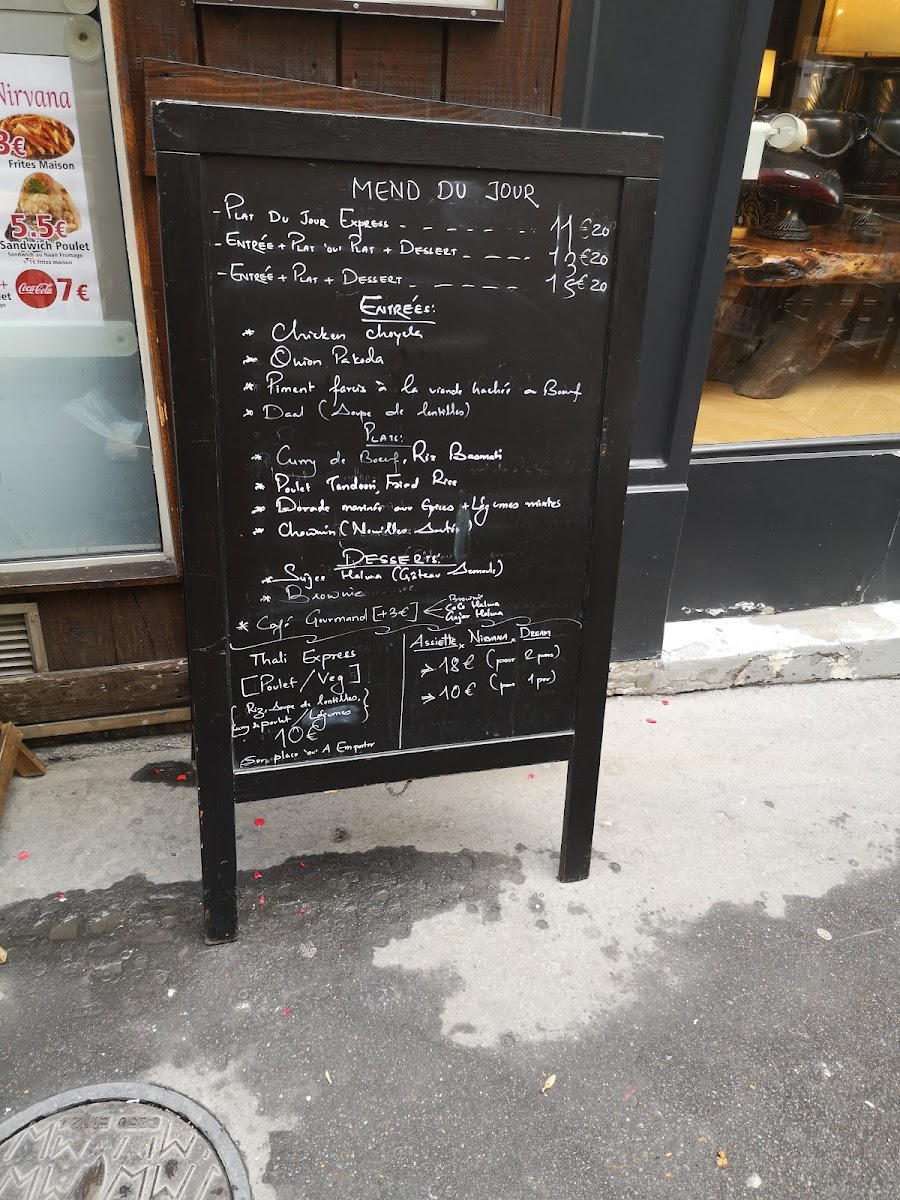 Nirvana
3€
Frites Maison
5.5€
Sandwich Poulet
Sandwich au Naan Fromage
frites maison
Coca-Cola 7€
MENU DU JOUR
- PLAT DU JOUR EXPRESS - - - - - - - 11€20
- ENTRÉE + PLAT 'ou' PLAT + DESSERT - - - - 13€20
- ENTRÉE + PLAT + DESSERT - - - - - - 15€20
ENTRÉES:
* Chicken Choyela
* Onion Pakoda
* Piment farcis à la viande hachée de Boeuf
* Daal (Soupe de lentilles)
PLATS:
* Curry de Boeuf, Riz Basmati
* Poulet Tandoori, Fried Rice
* Dorade marinée aux épices + Légumes mixtes
* Chowmin (Nouilles Sautés)
DESSERTS:
* Sujee Haluwa (Gâteau Semoule)
* Brownie
* Café Gourmand [+3€]
Brownie
Coco Halwa
Gajar Halwa
Thali Express
[Poulet/Veg]
{Riz, Soupe de lentilles,
Curry de poulet/Légumes}
10€
Sur place 'ou' A Emporter
ASSIETTE NIRVANA DREAM
→ 18€ (pour 2 pers)
→ 10€ (pour 1 per)